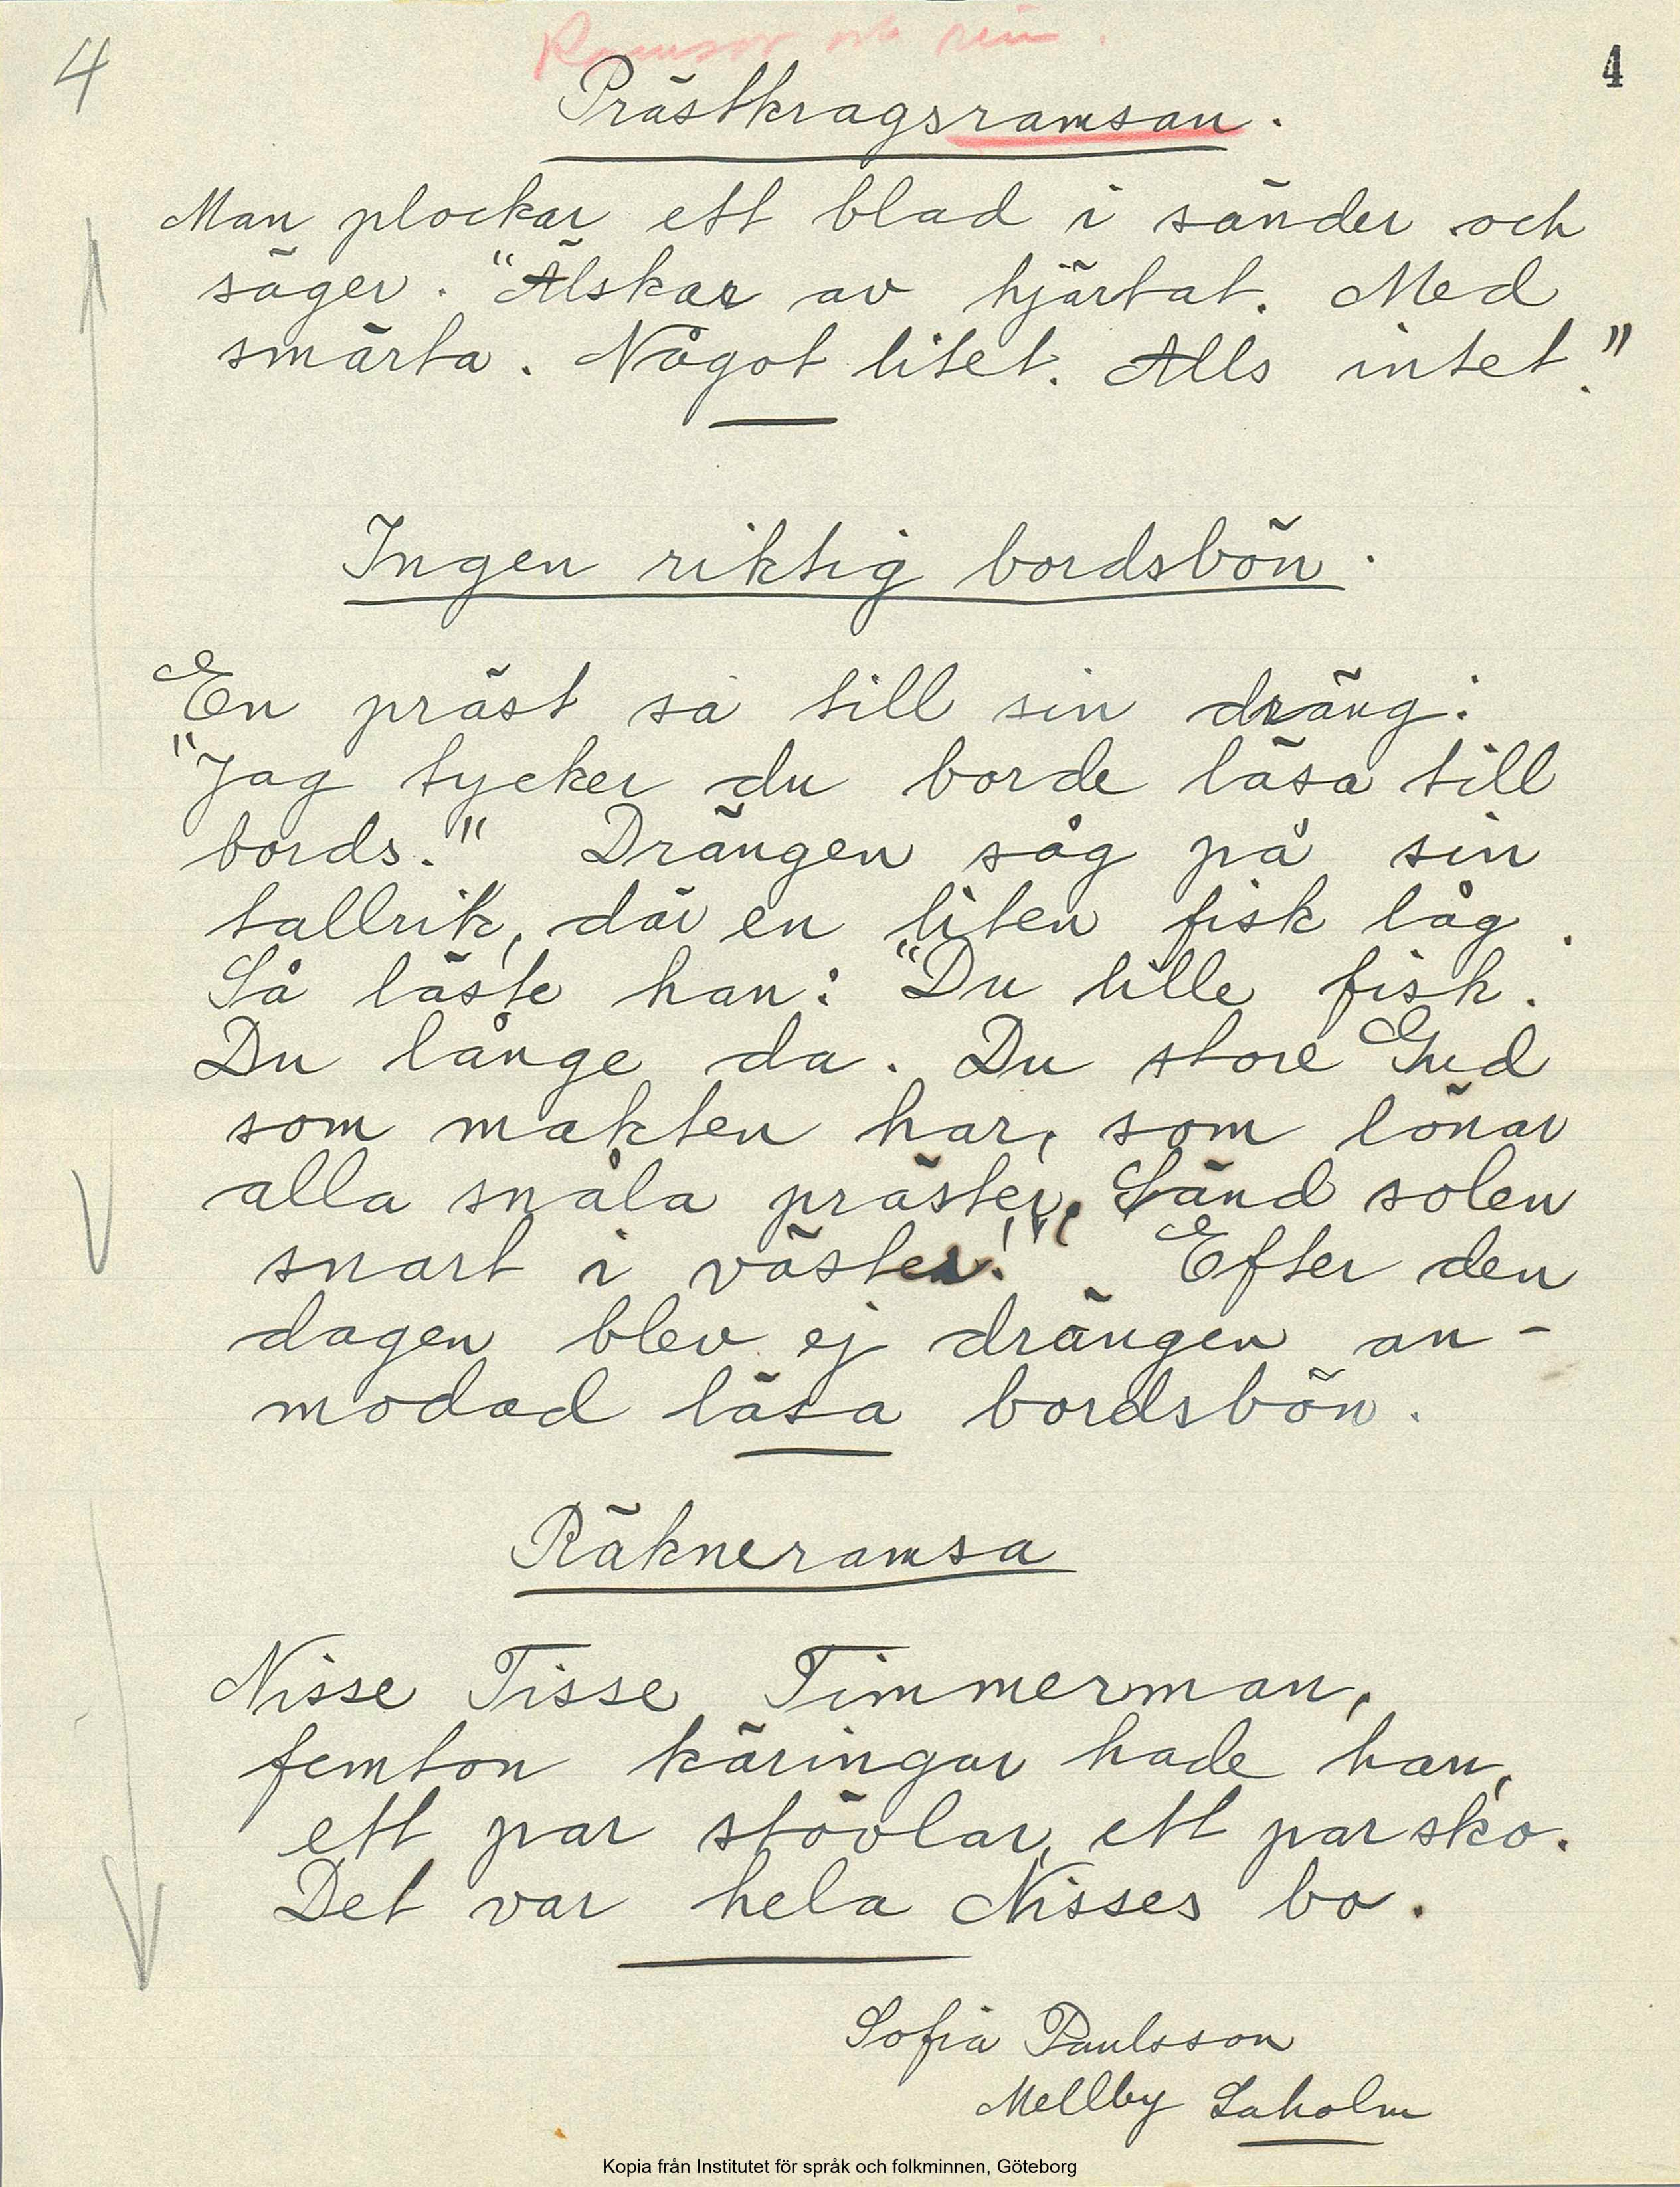 4
Ramsor och rim.
4
Prästkragsramsan.
Man plockar ett blad i sänder och
säger. "Älskar av hjärtat. Med
smärta. Något litet. Alls intet."
Ingen riktig bordsbön.
En präst sa till sin dräng:
"Jag tycker du borde läsa till
bords." Drängen såg på sin
tallrik, där en liten fisk låg.
Så läste han: "Du lille fisk.
Du långe da. Du store Gud
som makten har, som lönar
alla snåla präster, Sänd solen
snart i väster!" Efter den
dagen blev ej drängen an-
modad läsa bordsbön.
Räkneramsa
Nisse Tisse Timmerman,
femton käringar hade han,
ett par stövlar, ett par sko.
Det var hela Nisses bo.
Sofia Paulsson
Mellby Laholm
Kopia från Institutet för språk och folkminnen, Göteborg